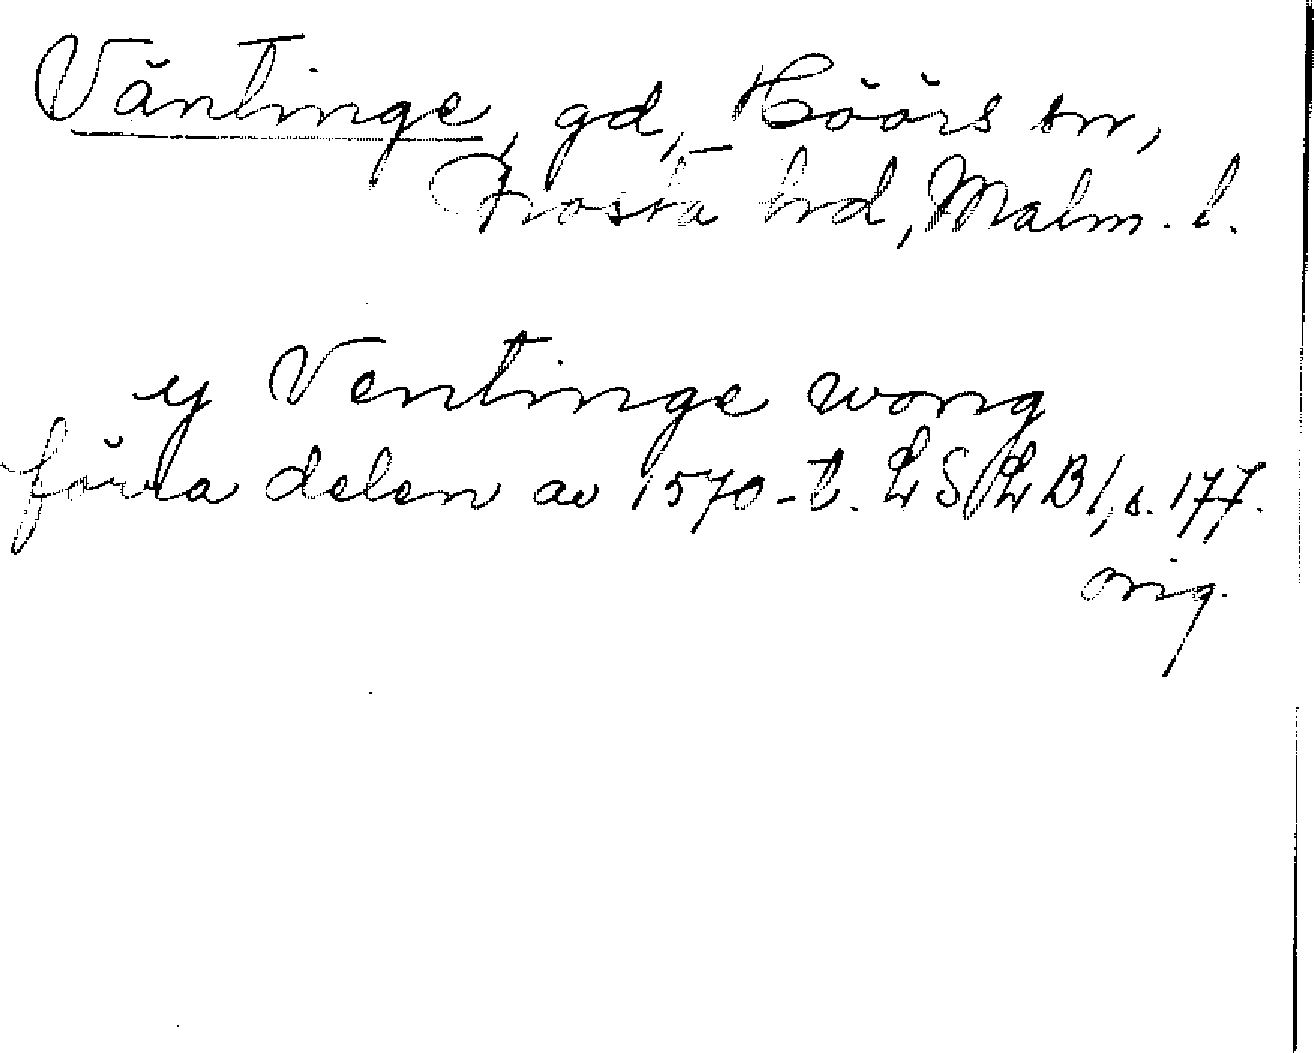 Väntinge, gd, Höörs sn,
Frosta hd, Malm. l.
ey Ventinge wong
förra delen av 1570-t. LSLB 1, s. 177.
orig.